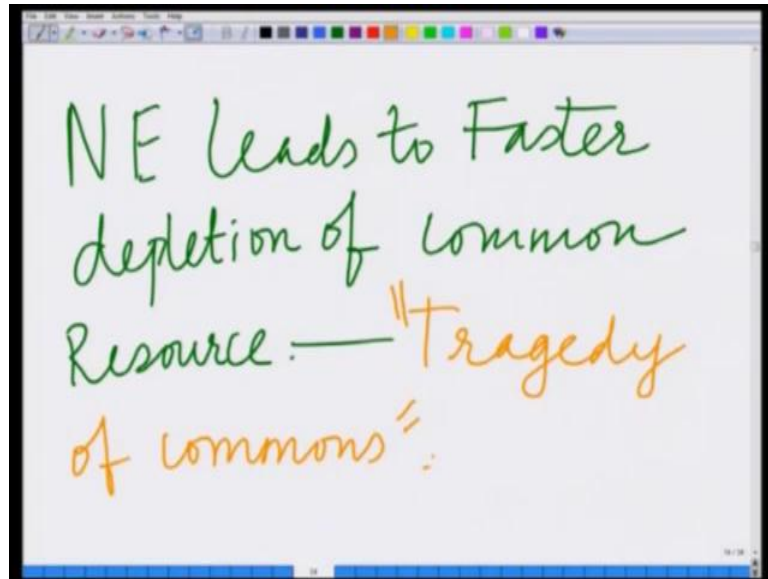 File Edit View Insert Actions Tools Help
NE leads to Faster
depletion of common
Resource. — "Tragedy
of commons".